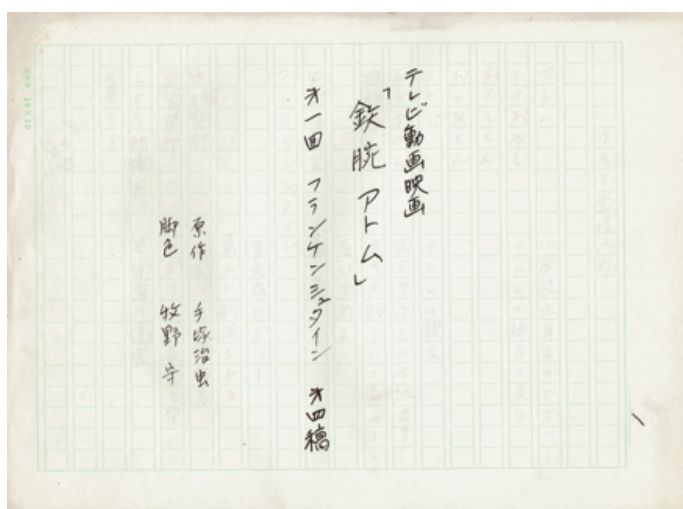 テレビ動画映画
「鉄腕アトム」
才一回 フランケンシュタイン 才四稿
原作 手塚治虫
脚色 牧野 守